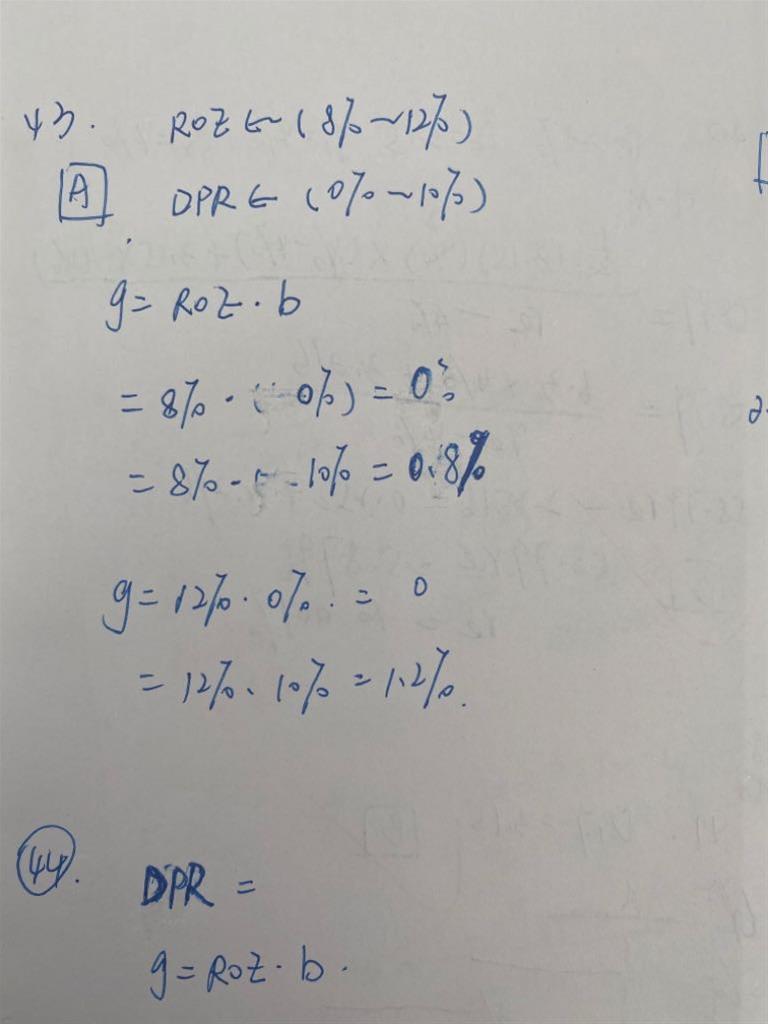 43. ROE ← (8% ~ 12%)
A DPR ← (0% ~ 10%)
g = ROE · b
= 8% · ( 0%) = 0%
= 8% · 10% = 0.8%
g = 12% · 0% . = 0
= 12% · 10% = 1.2%.
44. DPR =
g = ROE · b .